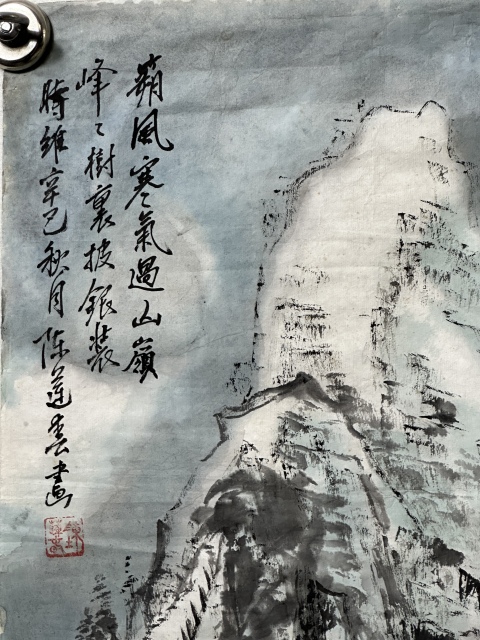 蒴風寒氣過山嶺
峰々樹裏披銀裝
時維辛巳秋月陈蓮春画